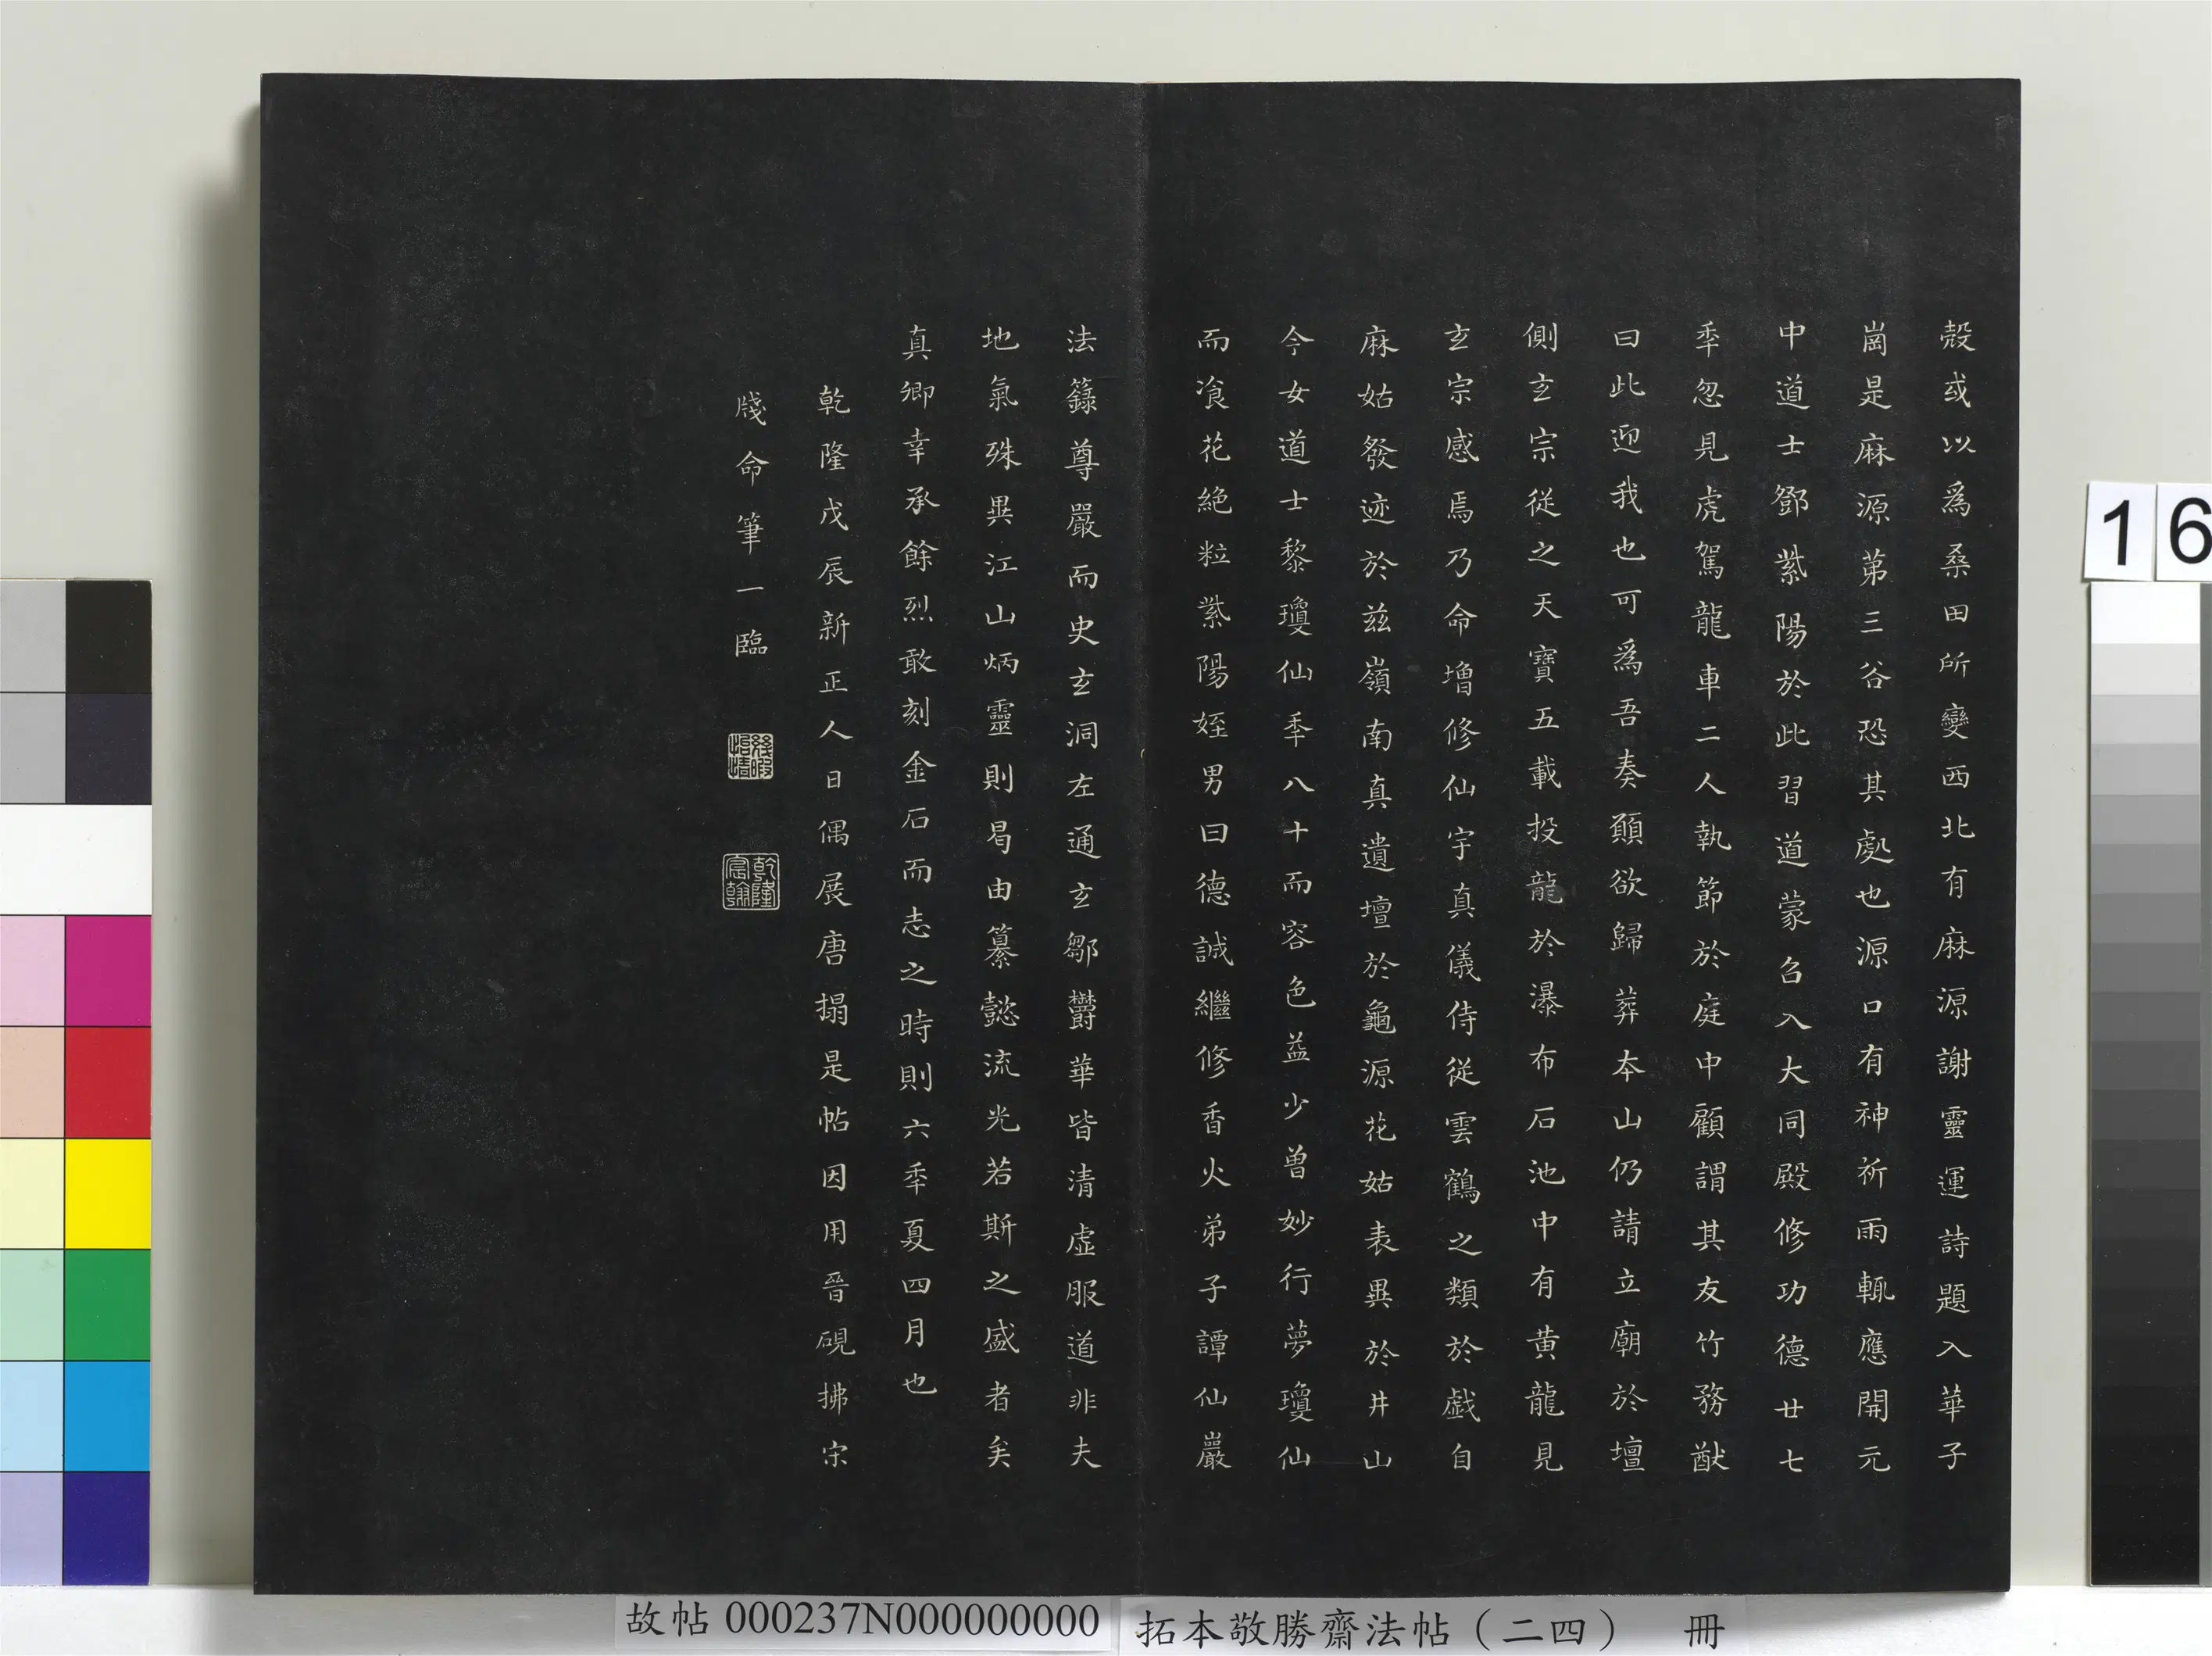 殼或以為桑田所變西北有麻源謝靈運詩題入華子
崗是麻源第三谷恐其處也源口有神祈雨輒應開元
中道士鄧紫陽於此習道蒙召入大同殿修功德廿七
秊忽見虎駕龍車二人執節於庭中顧謂其友竹務猷
曰此迎我也可為吾奏願欲歸葬本山仍請立廟於壇
側玄宗從之天寶五載投龍於瀑布石池中有黃龍見
玄宗感焉乃命增修仙宇真儀侍從雲鶴之類於戲自
麻姑發迹於茲嶺南真遺壇於龜源花姑表異於井山
今女道士黎瓊仙秊八十而容色益少曾妙行夢瓊仙
而飡花絕粒紫陽姪男曰德誠繼修香火弟子譚仙巖
法籙尊嚴而史玄洞左通玄鄒鬱華皆清虛服道非夫
地氣殊異江山炳靈則曷由纂懿流光若斯之盛者矣
真卿幸承餘烈敢刻金石而志之時則六秊夏四月也
乾隆戊辰新正人日偶展唐搨是帖因用晉硯拂宋
牋命筆一臨
幾暇怡情
乾隆宸翰
16
故帖 000237N000000000
拓本敬勝齋法帖（二四） 冊